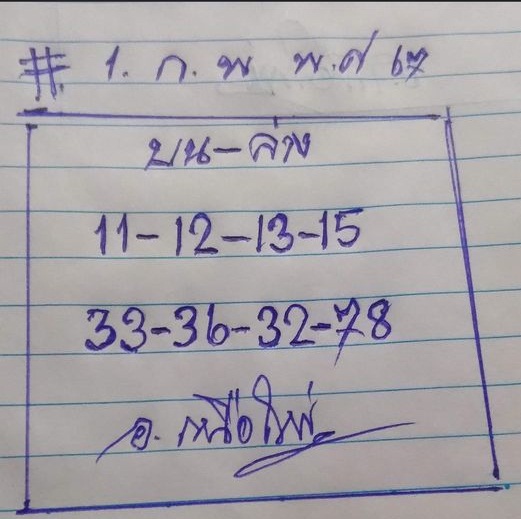 # 1. ก. พ พ.ศ 67
บน-ล่าง
11-12-13-15
33-36-32-78
อ. เหนือใหม่